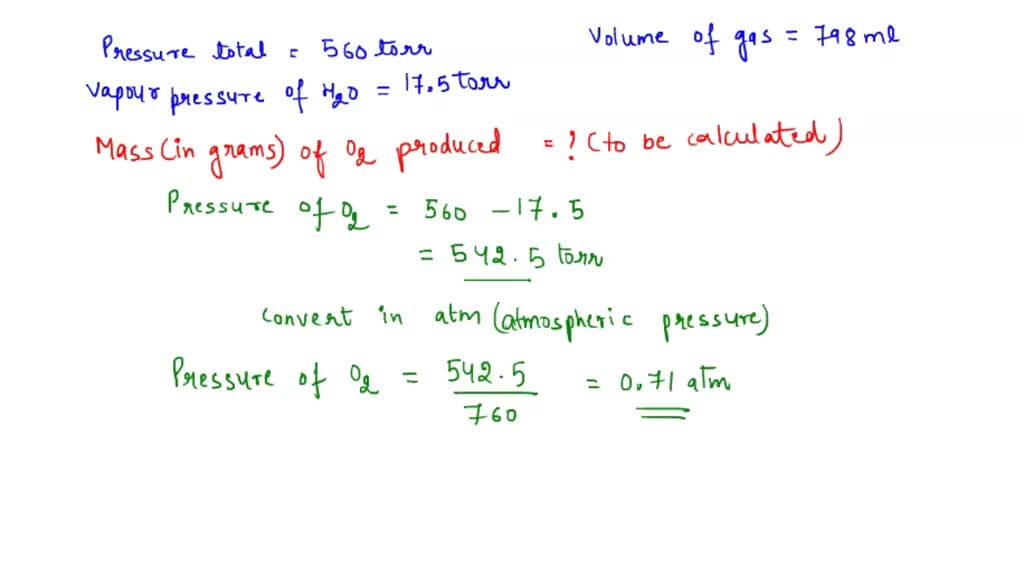 Pressure total = 560 torr
Volume of gas = 798 ml
Vapour pressure of H₂O = 17.5 torr
Mass (in grams) of O₂ produced = ? (to be calculated)
Pressure of O₂ = 560 - 17.5
= 542.5 torr
convert in atm (atmospheric pressure)
Pressure of O₂ = 542.5 / 760 = 0.71 atm